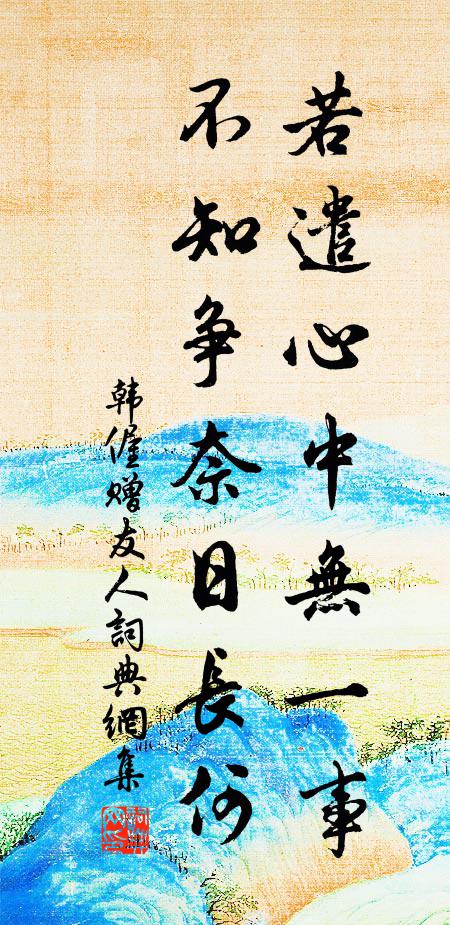 若遣心中無一事
不知争奈日長何
韩偓赠友人詞典網集